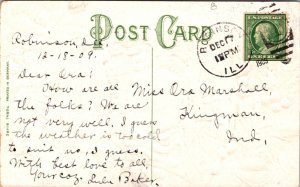 POST CARD
Robinson, Ill
12-18-09.
Dear Ora!
How are all
the folks? We are
not very well, I guess
the weather is too cold
to suit us, I guess.
With best love to all,
Your coz, Lula Baker.
Miss Ora Marshall,
Kingman,
Ind,
DEC 17
PM
ILL